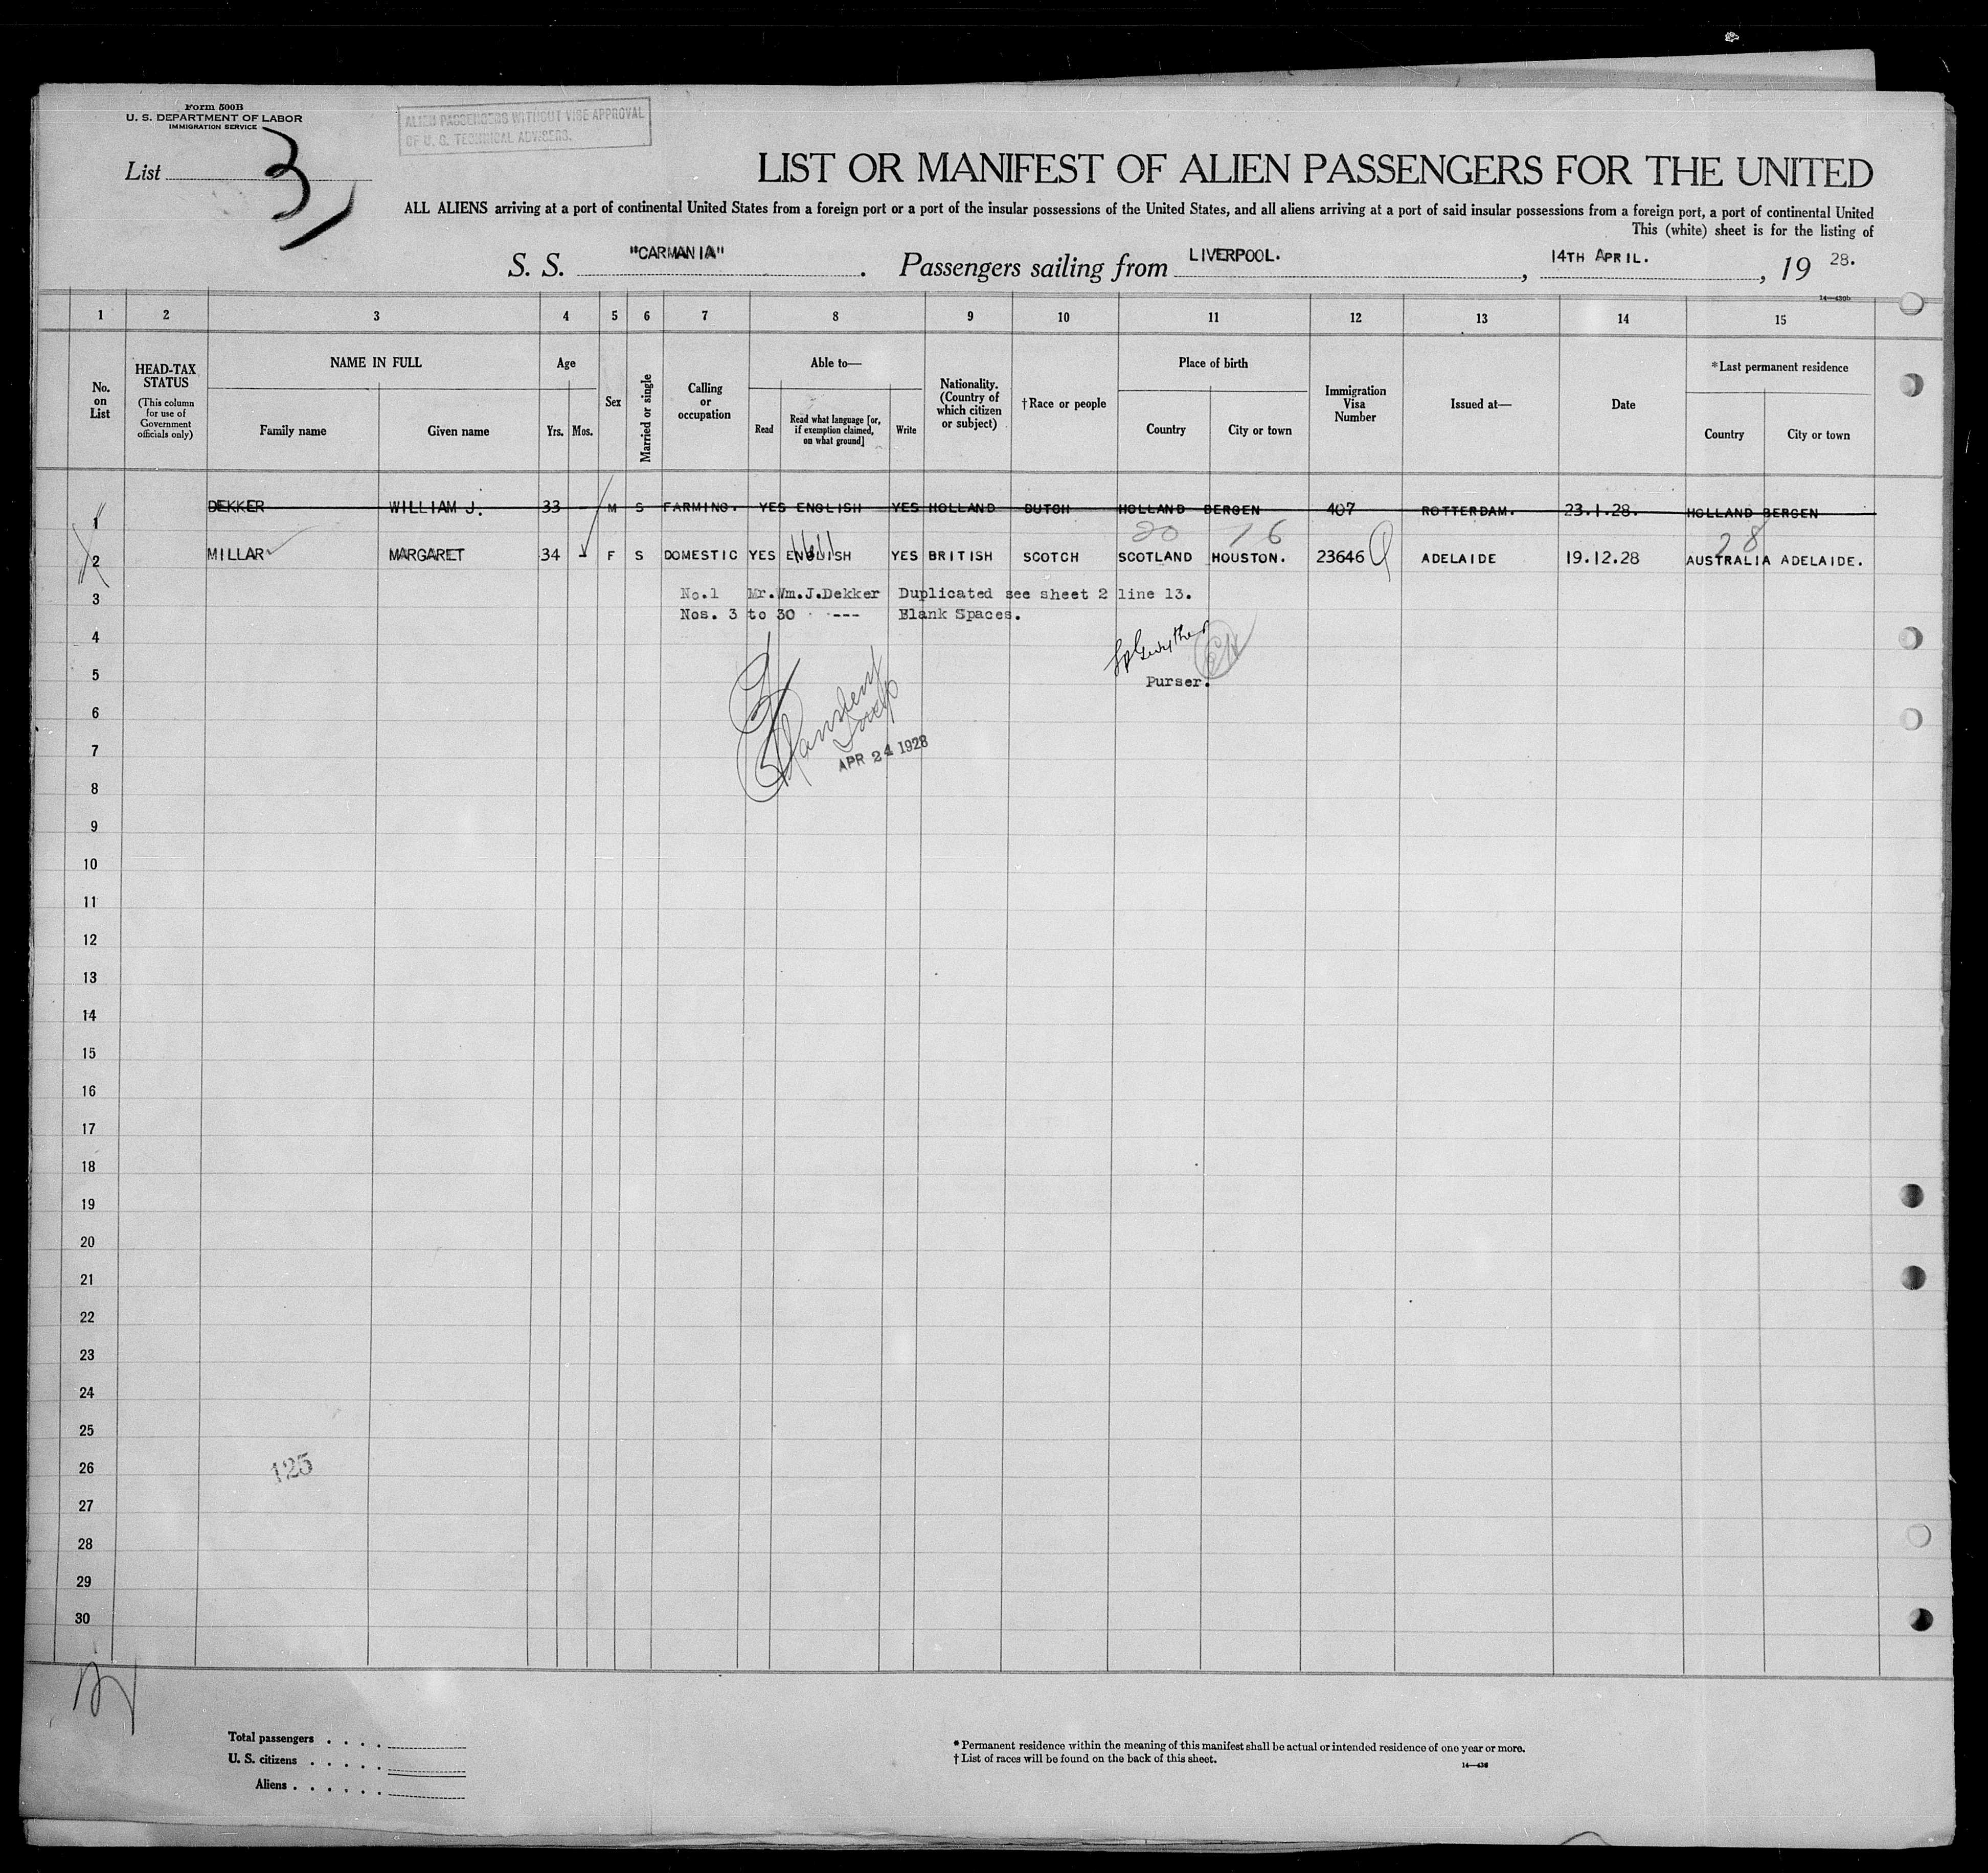 Form 500B
U. S. DEPARTMENT OF LABOR
IMMIGRATION SERVICE
ALIEN PASSENGERS WITHOUT VISE APPROVAL
OF U. S. TECHNICAL ADVISERS.
List 3
LIST OR MANIFEST OF ALIEN PASSENGERS FOR THE UNITED
ALL ALIENS arriving at a port of continental United States from a foreign port or a port of the insular possessions of the United States, and all aliens arriving at a port of said insular possessions from a foreign port, a port of continental United
This (white) sheet is for the listing of
S. S. "CARMANIA". Passengers sailing from LIVERPOOL., 14TH APRIL., 19 28.
14—430b
1 2 3 4 5 6 7 8 9 10 11 12 13 14 15
No. on List
HEAD-TAX STATUS (This column for use of Government officials only)
NAME IN FULL
Family name Given name
Age
Yrs. Mos.
Sex
Married or single
Calling or occupation
Able to—
Read Read what language [or, if exemption claimed, on what ground] Write
Nationality. (Country of which citizen or subject)
†Race or people
Place of birth
Country City or town
Immigration Visa Number
Issued at—
Date
*Last permanent residence
Country City or town
1 DEKKER WILLIAM J. 33 M S FARMING. YES ENGLISH YES HOLLAND DUTCH HOLLAND BERGEN 407 ROTTERDAM. 23.1.28. HOLLAND BERGEN
20 76 28
2 MILLAR MARGARET 34 F S DOMESTIC YES ENGLISH YES BRITISH SCOTCH SCOTLAND HOUSTON. 23646 ADELAIDE 19.12.28 AUSTRALIA ADELAIDE.
3 No.1 Mr.Wm.J.Dekker Duplicated see sheet 2 line 13.
Nos. 3 to 30 --- Blank Spaces.
4
5 Purser.
6
7 APR 24 1928
8
9
10
11
12
13
14
15
16
17
18
19
20
21
22
23
24
25
26 125
27
28
29
30
Total passengers . . . .
U. S. citizens . . . . .
Aliens . . . . . .
* Permanent residence within the meaning of this manifest shall be actual or intended residence of one year or more.
† List of races will be found on the back of this sheet.
14—430